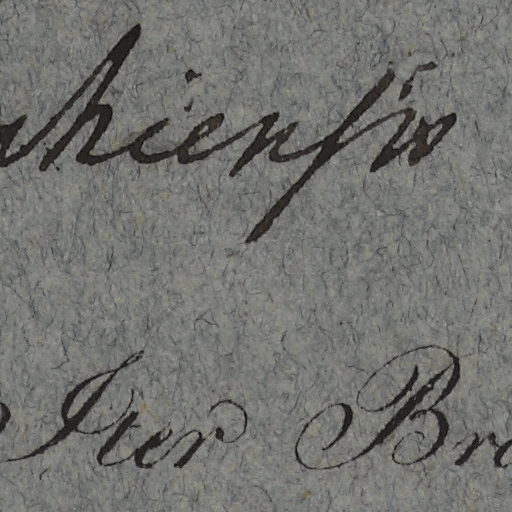 ahiensis
Iter Bra